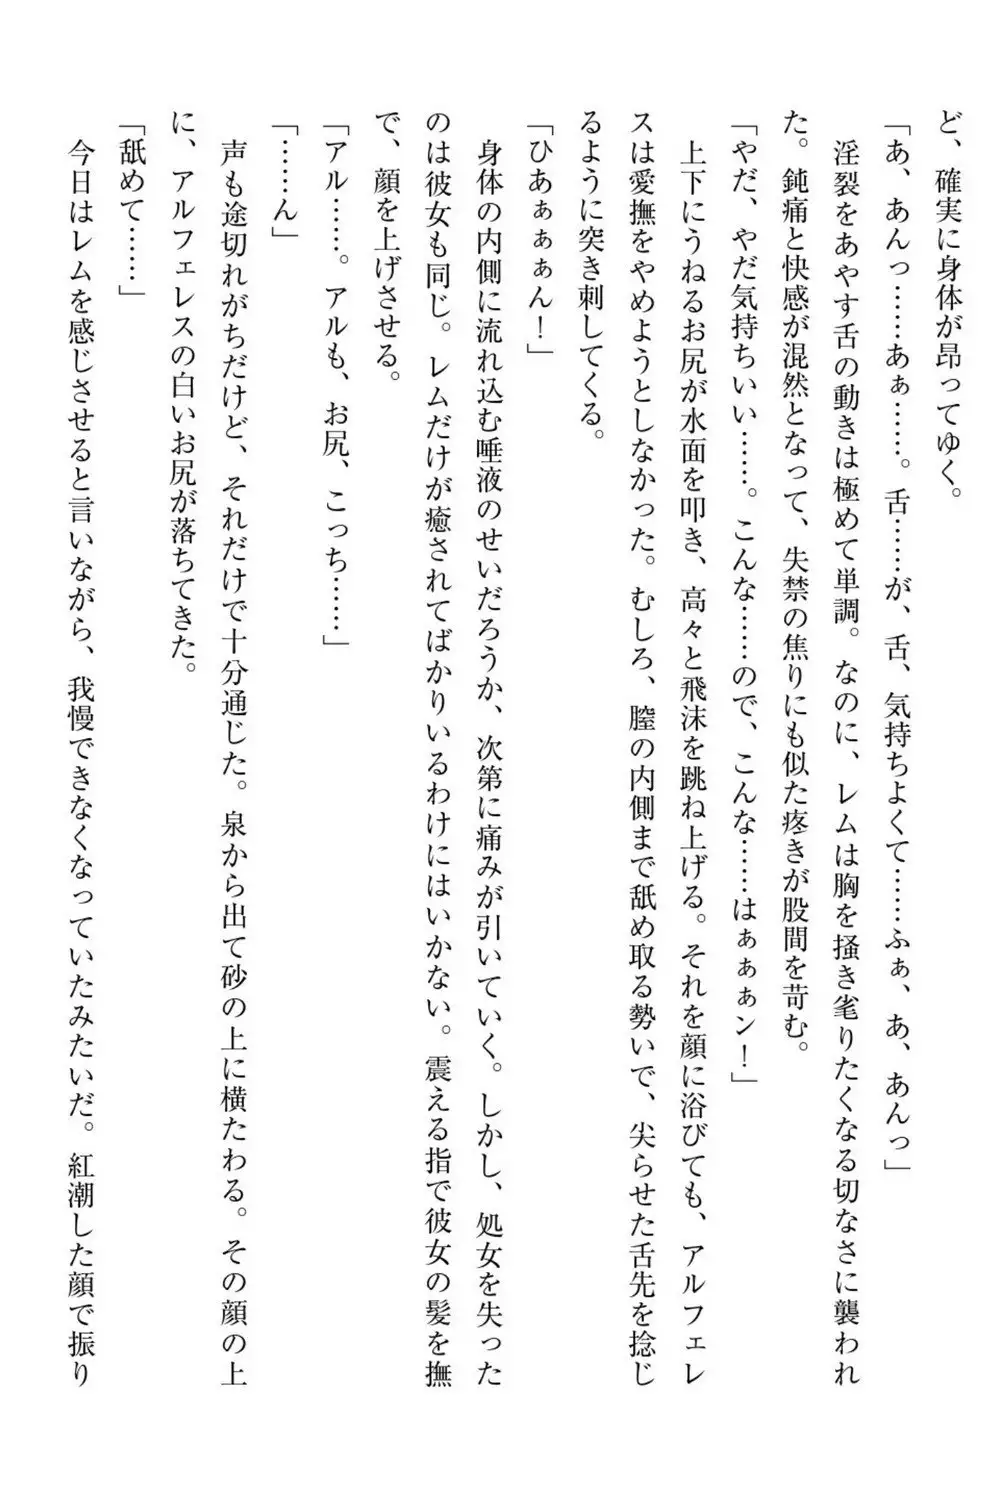 ど、確実に身体が昂ってゆく。
「あ、あんっ……あぁ……。舌……が、舌、気持ちよくて……ふぁ、あ、あんっ」
　淫裂をあやす舌の動きは極めて単調。なのに、レムは胸を掻き毟りたくなる切なさに襲われ
た。鈍痛と快感が混然となって、失禁の焦りにも似た疼きが股間を苛む。
「やだ、やだ気持ちいい……。こんな……ので、こんな……はぁぁぁン！」
　上下にうねるお尻が水面を叩き、高々と飛沫を跳ね上げる。それを顔に浴びても、アルフェレ
スは愛撫をやめようとしなかった。むしろ、膣の内側まで舐め取る勢いで、尖らせた舌先を捻じ
るように突き刺してくる。
「ひあぁぁぁん！」
　身体の内側に流れ込む唾液のせいだろうか、次第に痛みが引いていく。しかし、処女を失った
のは彼女も同じ。レムだけが癒されてばかりいるわけにはいかない。震える指で彼女の髪を撫
で、顔を上げさせる。
「アル……。アルも、お尻、こっち……」
「……ん」
　声も途切れがちだけど、それだけで十分通じた。泉から出て砂の上に横たわる。その顔の上
に、アルフェレスの白いお尻が落ちてきた。
「舐めて……」
　今日はレムを感じさせると言いながら、我慢できなくなっていたみたいだ。紅潮した顔で振り